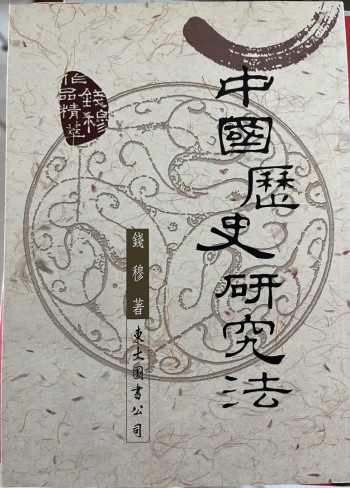 中國歷史研究法
錢穆
作品精萃
錢穆 著
東大圖書公司